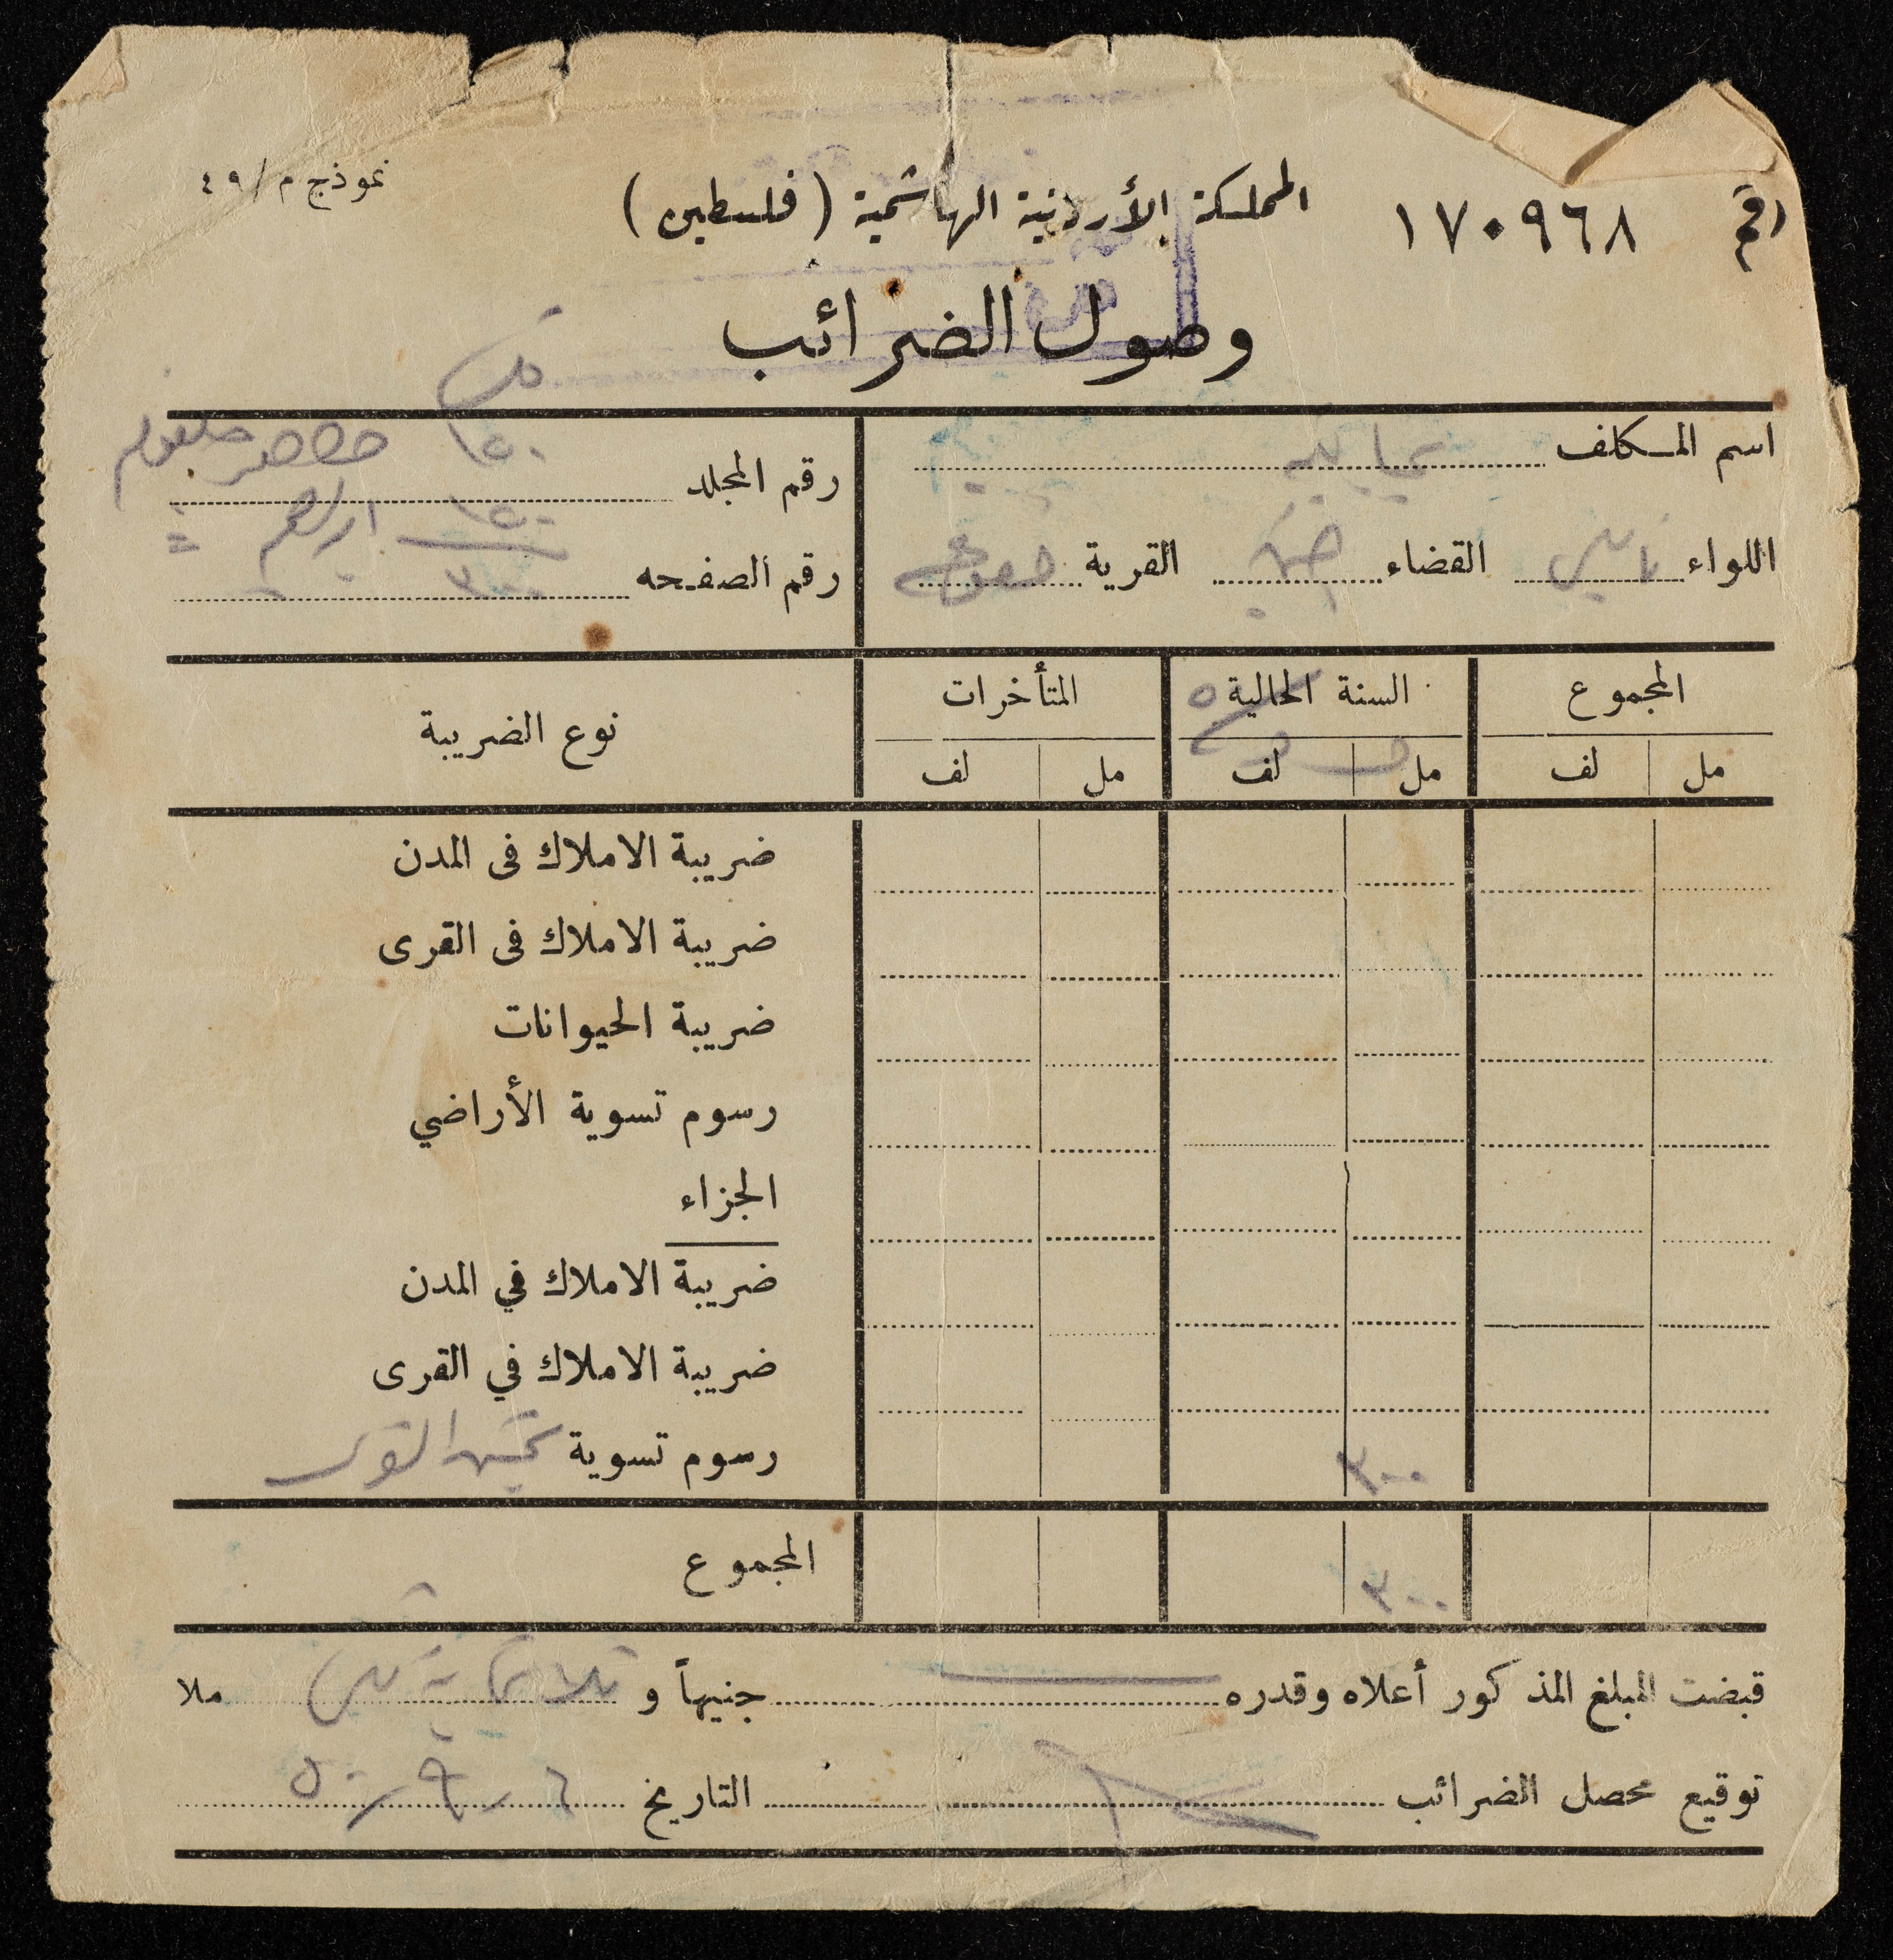 رقم ١٧٠٩٦٨
المملكة الأردنية الهاشمية ( فلسطين )
نموذج م / ٤٩
وصول الضرائب
اسم المكلف
رقم المجلد
١٥٠
اللواء نابلس القضاء جنين القرية
رقم الصفحه
١٥٠
٣٠٠
المجموع السنة الحالية المتأخرات نوع الضريبة
مل لف مل لف مل لف
ضريبة الاملاك فى المدن
ضريبة الاملاك فى القرى
ضريبة الحيوانات
رسوم تسوية الأراضي
الجزاء
ضريبة الاملاك في المدن
ضريبة الاملاك في القرى
رسوم تسوية تحسين القرى ٣٠٠
المجموع ٣٠٠
قبضت المبلغ المذكور أعلاه وقدره جنيهاً و ثلاثماية ملا
توقيع محصل الضرائب التاريخ